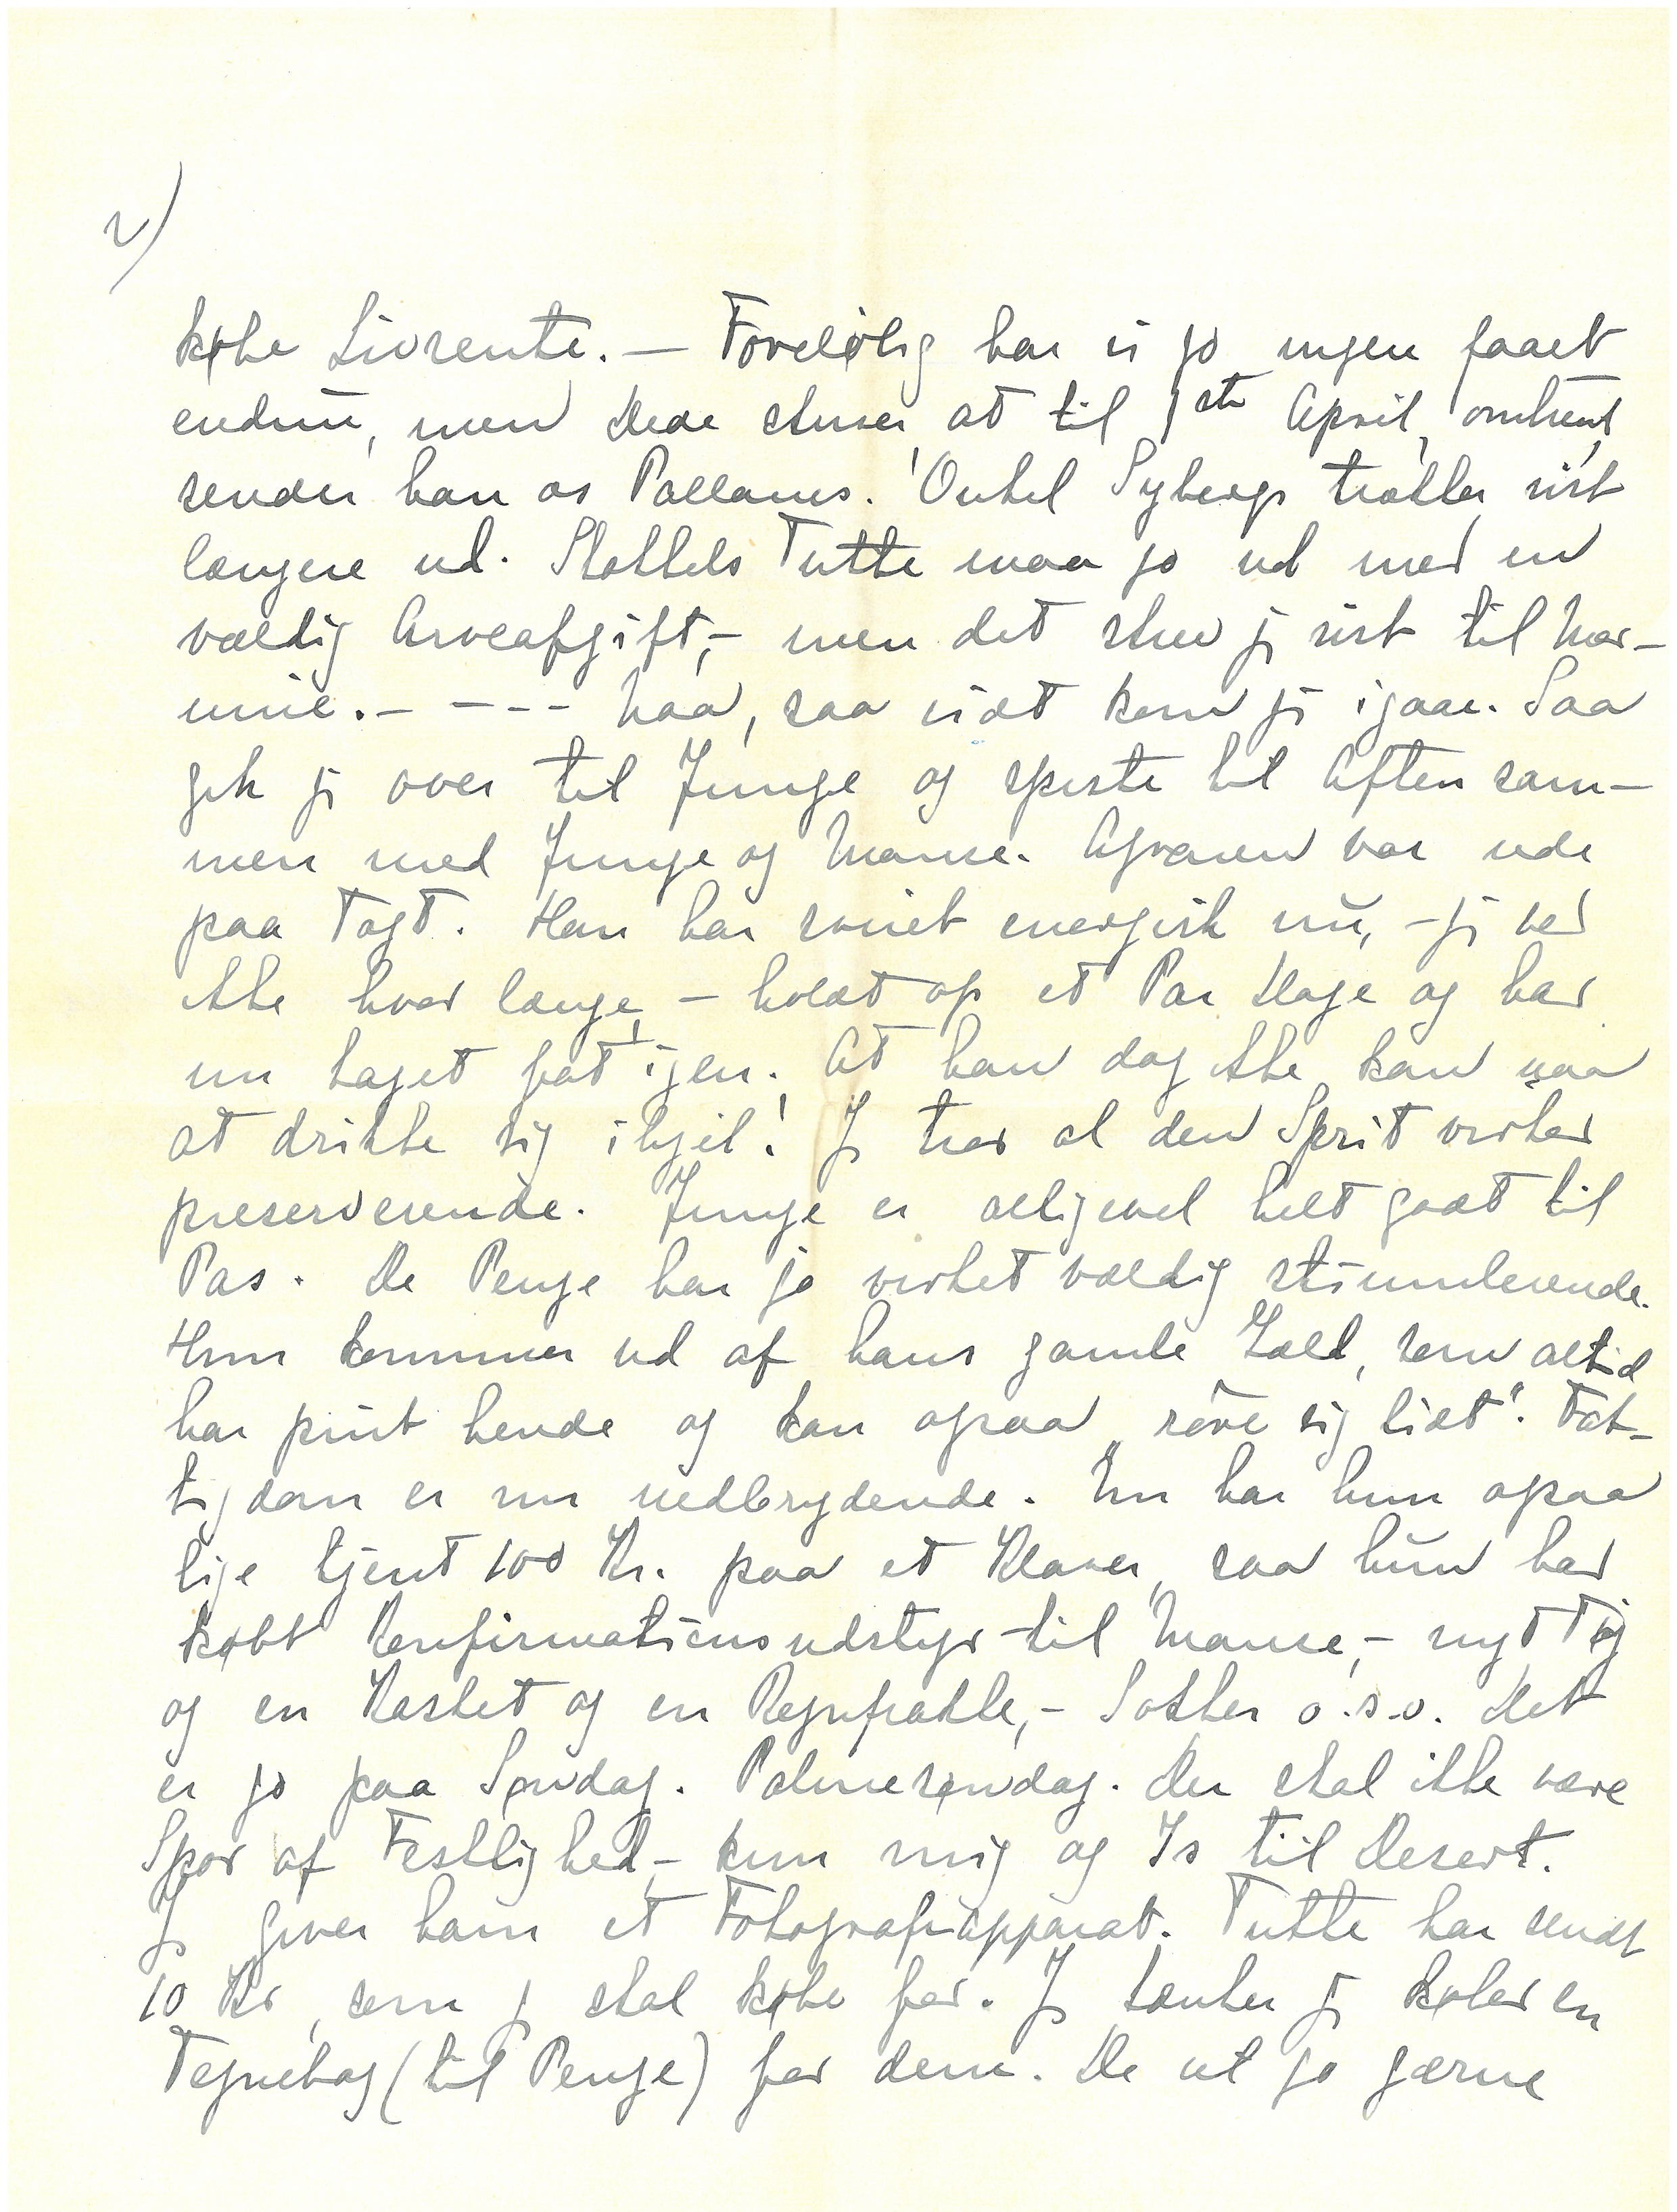 2)
købe Livrente. — Foreløbig har vi jo ingen faaet
endnu, men Dede skriver, at til 1ste April, omtrent,
sender han os Pallams. Onkel Sybergs trækker vist
længere ud. Stakkels Tutte maa jo ud med en
vældig Arveafgift, – men det skrev jeg vist til Mor-
nine. – – – – Naa, saa vidt kom jeg igaar. Saa
gik jeg over til Junge og spiste til Aften sam-
men med Junge og Manse. Agraren var ude
paa Togt. Han har sviret energisk nu, – jeg ved
ikke hvor længe, – holdt op et Par Dage og har
nu taget fat igen. At han dog ikke kan naa
at drikke sig ihjel! Jeg tror al den Sprit virker
preserverende. Junge er alligevel helt godt til
Pas. De Penge har jo virket vældig stimulerende.
Hun kommer ud af hans gamle Gæld, som altid
har pint hende og kan ogsaa „røre sig lidt". Fat-
tigdom er nu nedbrydende. Nu har hun ogsaa
lige tjent 100 Kr. paa et Klaver, saa hun har
købt Konfirmationsudstyr til Manse, – nyt Tøj
og en Kasket og en Regnfrakke, – Sokker o.s.v. Det
er jo paa Søndag. Palmesøndag. Der skal ikke være
Spor af Festlighed, – kun mig og Is til Desert.
Jeg giver ham et Fotografiapparat. Tutte har sendt
10 Kr, som jeg skal købe for. Jeg tænker jeg køber en
Tegnebog (til Penge) for dem. De vil jo gærne